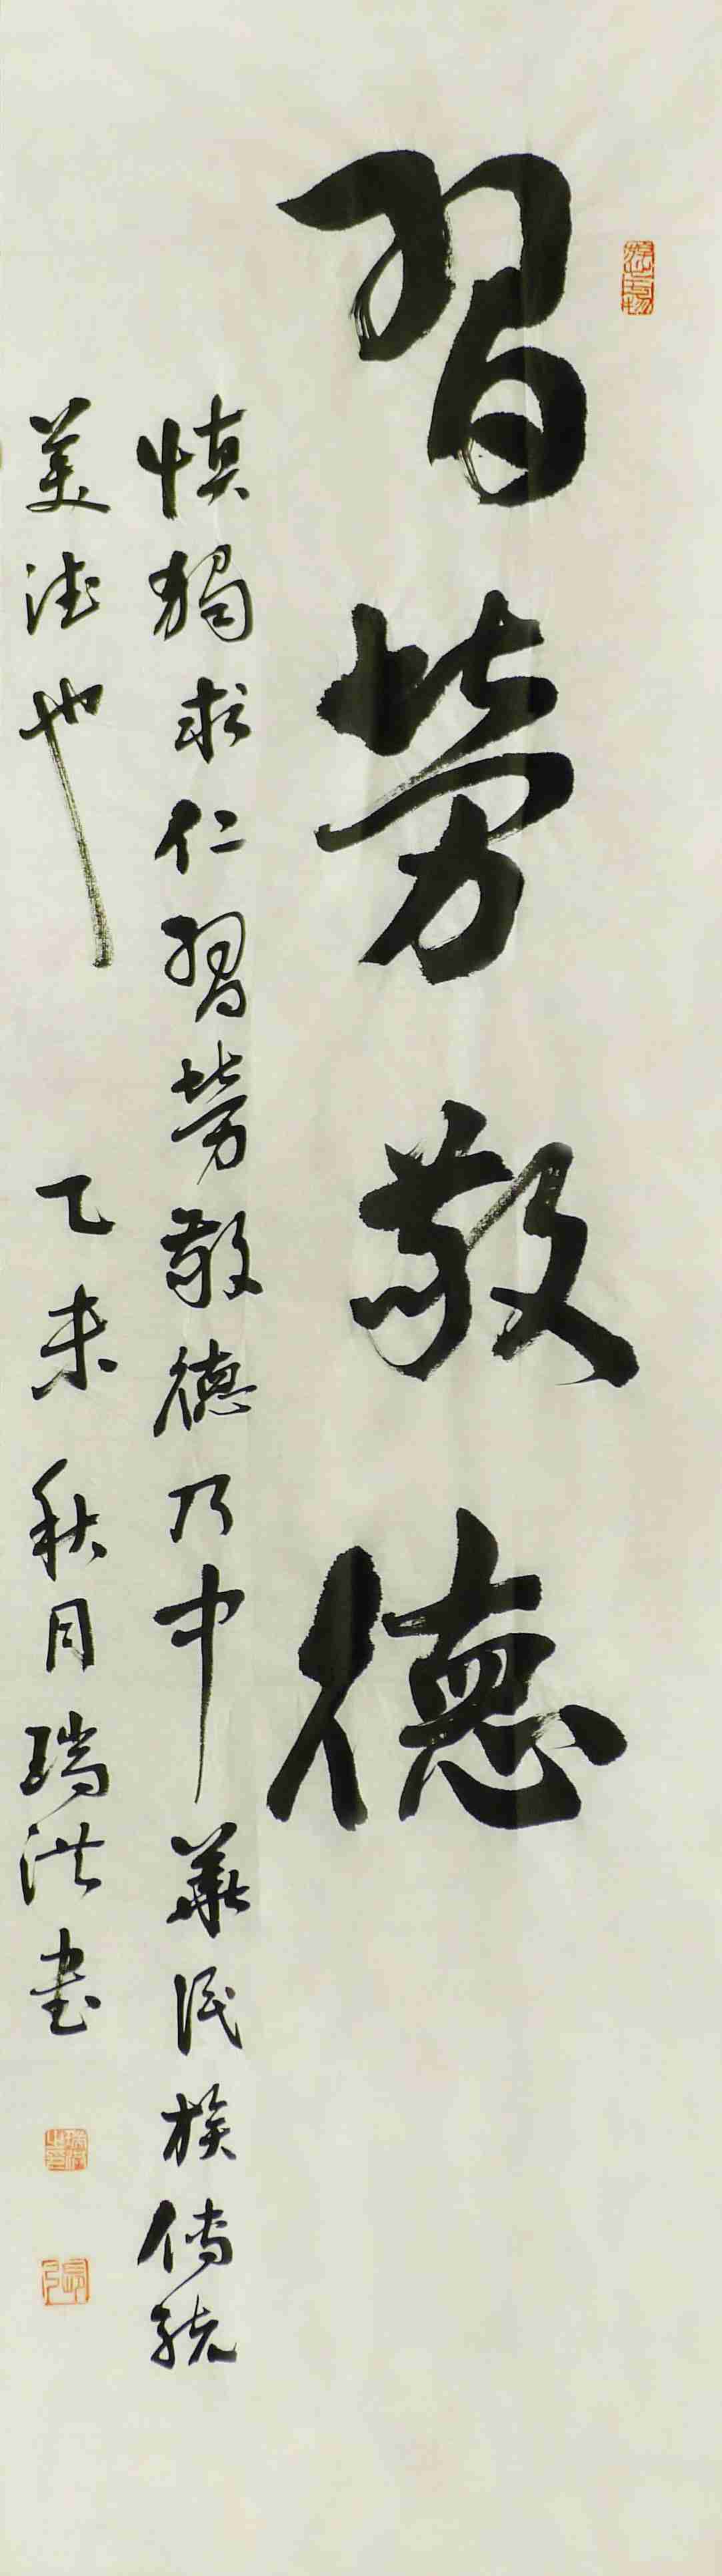 習勞敬德
慎獨求仁習勞敬德乃中華民族傳統
美德也 乙未秋月瑞洪书